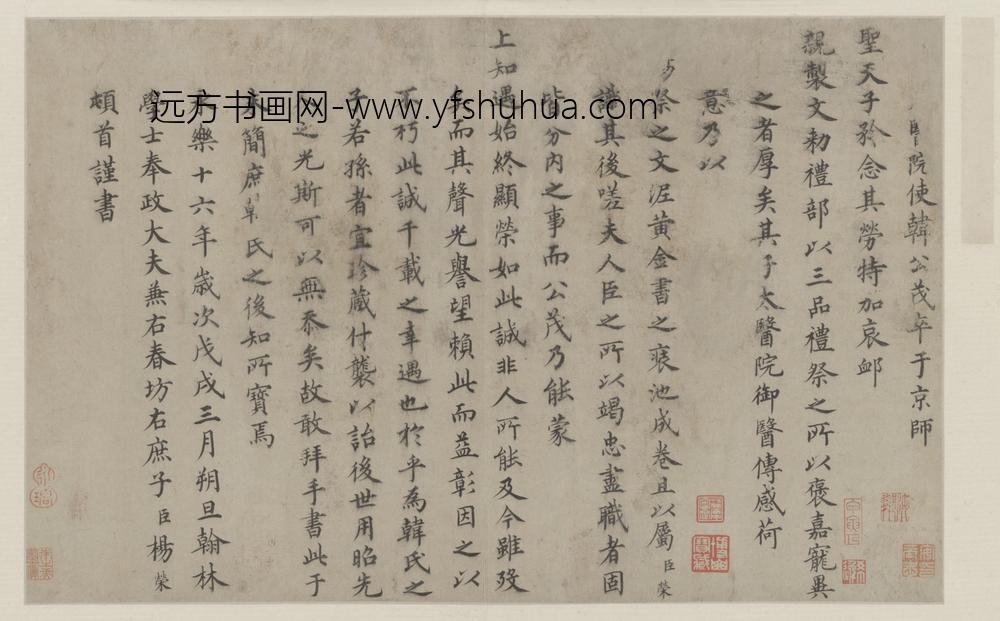 醫院使韓公茂卒于京師
聖天子矜念其勞特加哀卹
親製文勅禮部以三品禮祭之所以褒嘉寵異
之者厚矣其子太醫院御醫傳感荷
意乃以
祭之文泥黃金書之裝池成卷且以屬臣榮
識其後嗟夫人臣之所以竭忠盡職者固
皆分內之事而公茂乃能蒙
上知遇始終顯榮如此誠非人所能及今雖歿
而其聲光譽望賴此而益彰因之以
不朽此誠千載之幸遇也於乎為韓氏之
子若孫者宜珍藏什襲以詒後世用昭先
之光斯可以無忝矣故敢拜手書此于
簡庶韓氏之後知所寶焉
永樂十六年歲次戊戌三月朔旦翰林
學士奉政大夫兼右春坊右庶子臣楊榮
頓首謹書
远方书画网-www.yfshuhua.com